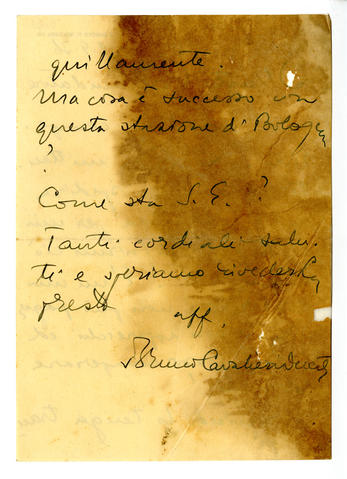 quillamente.
Ma cosa è successo con
questa stazione di Bologna
?
Come sta S. E. ?
Tanti cordiali salu-
ti e speriamo rivederci
presto
aff.
Bruno Cavalieri Ducati